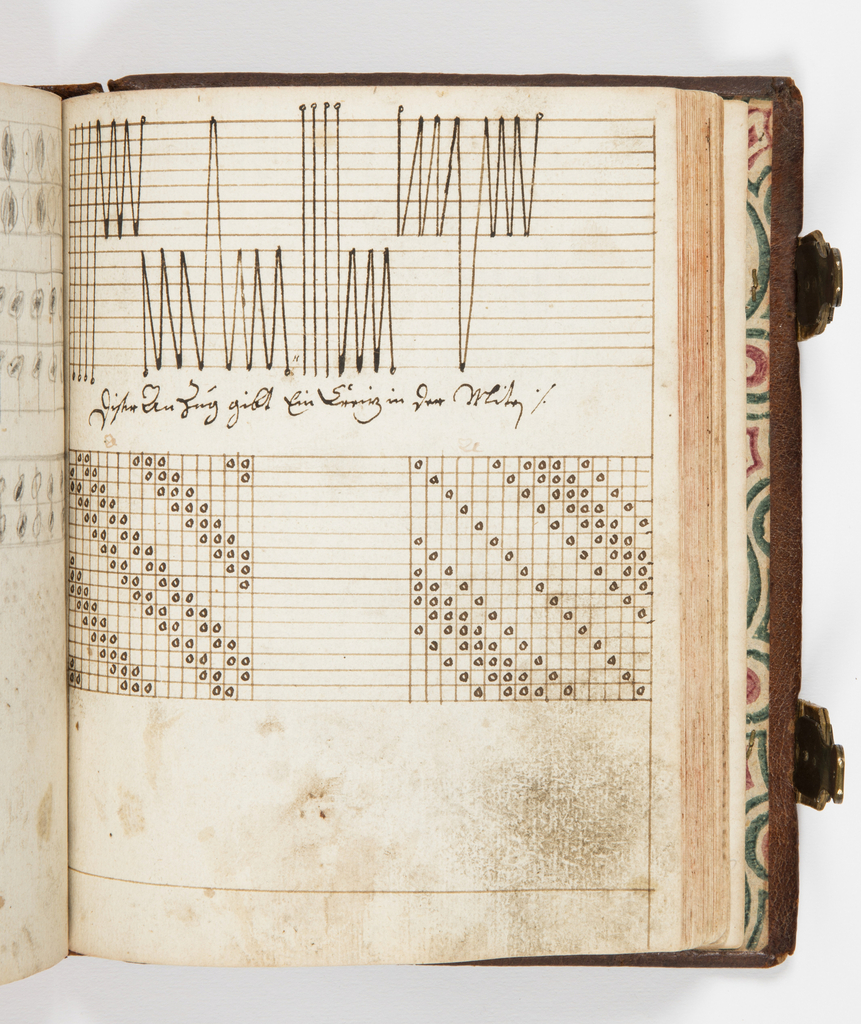 Diser An Zúg gibt Ein Creiűz in der Mitej ·/·